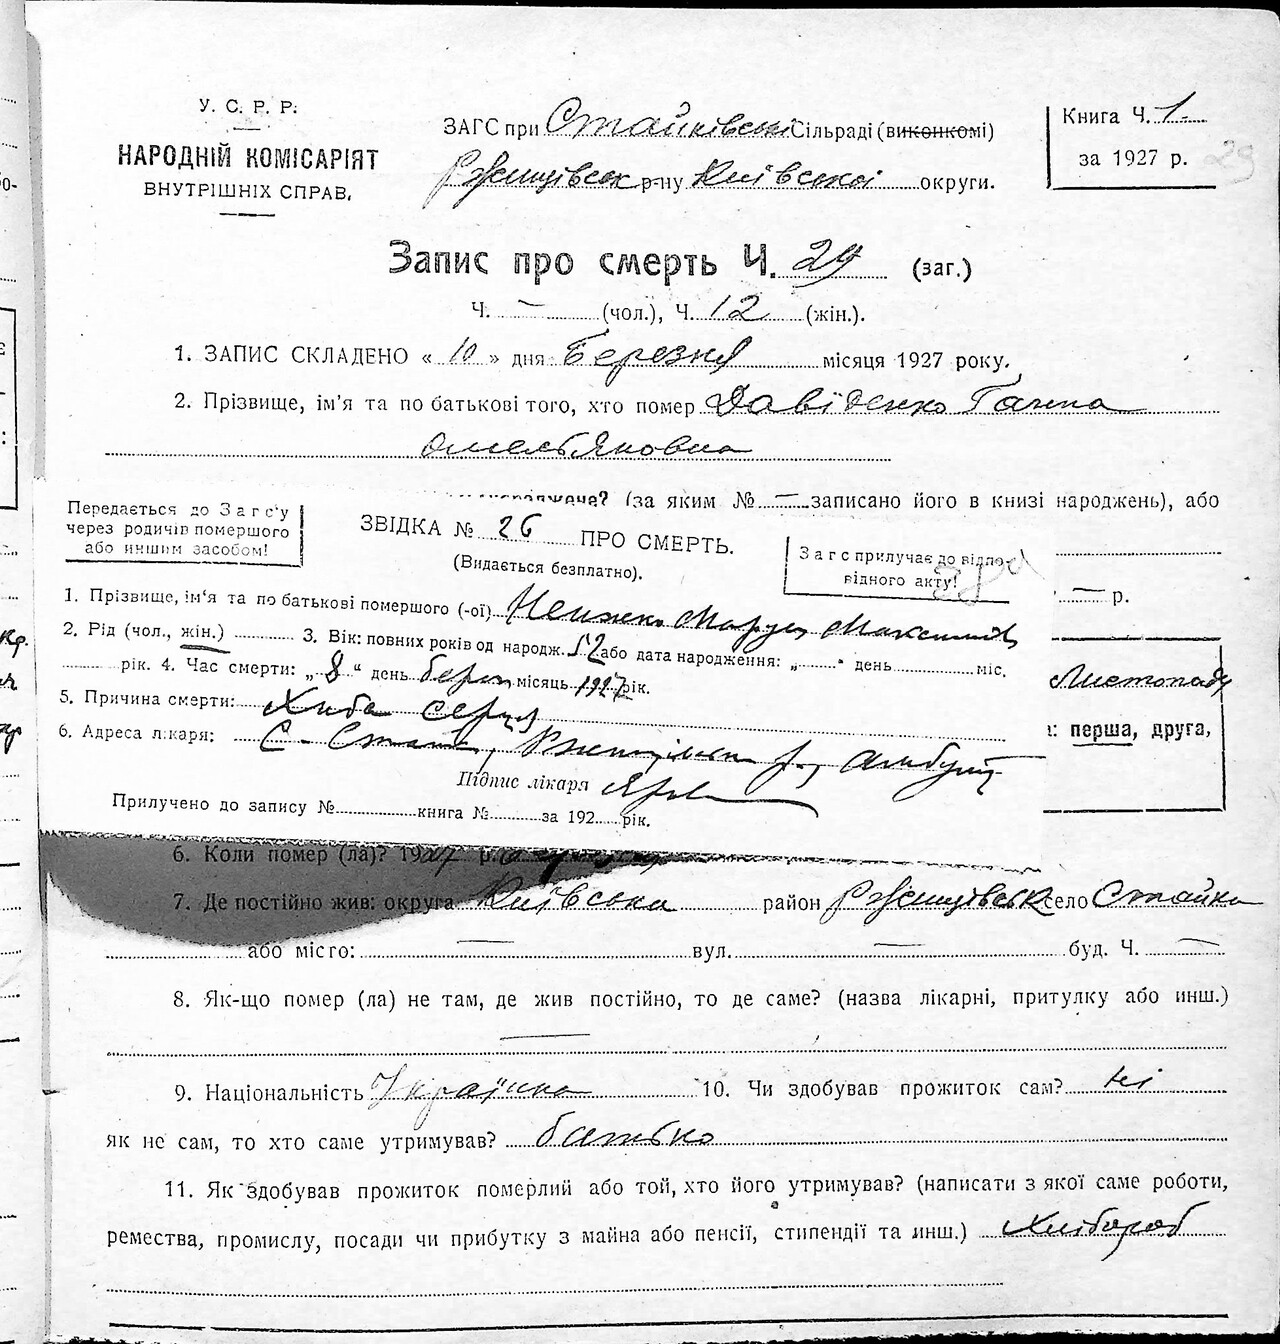 У. С. Р. Р.
НАРОДНІЙ КОМІСАРІЯТ
ВНУТРІШНІХ СПРАВ.
ЗАГС при Стайківські Сільраді (виконкомі)
Ржищівськ р-ну Київської округи.
Книга Ч. 1.
за 1927 р.
29
Запис про смерть Ч. 29 (заг.)
Ч. — (чол.), Ч. 12 (жін.).
1. ЗАПИС СКЛАДЕНО « 10 » дня Березня місяця 1927 року.
2. Прізвище, ім'я та по батькові того, хто помер Давіденко Ганна
Омельяновна
(за яким № — записано його в книзі народжень), або
Передається до Загс'у
через родичів помершого
або иншим засобом!
ЗВІДКА № 26 ПРО СМЕРТЬ.
(Видається безплатно).
Загс прилучає до відпо-
відного акту!
— р.
1. Прізвище, ім'я та по батькові помершого (-ої)
2. Рід (чол., жін.) 3. Вік: повних років од народж. 52 або дата народження: „ “ день міс.
рік. 4. Час смерти: „ 8 “ день берез місяць 1927 рік.
Листопаду
5. Причина смерти: Хиба серця
: перша, друга,
6. Адреса лікаря: С. Стайки, р.,
Підпис лікаря
Прилучено до запису № книга № за 192 рік.
6. Коли помер (ла)? 1927 р.
7. Де постійно жив: округа Київська район Ржищівськ село Стайки
або місто: — вул. — буд. Ч. —
8. Як-що помер (ла) не там, де жив постійно, то де саме? (назва лікарні, притулку або инш.)
—
9. Національність Українка 10. Чи здобував прожиток сам? ні
як не сам, то хто саме утримував? батько
11. Як здобував прожиток померлий або той, хто його утримував? (написати з якої саме роботи,
ремества, промислу, посади чи прибутку з майна або пенсії, стипендії та инш.) Хлібороб